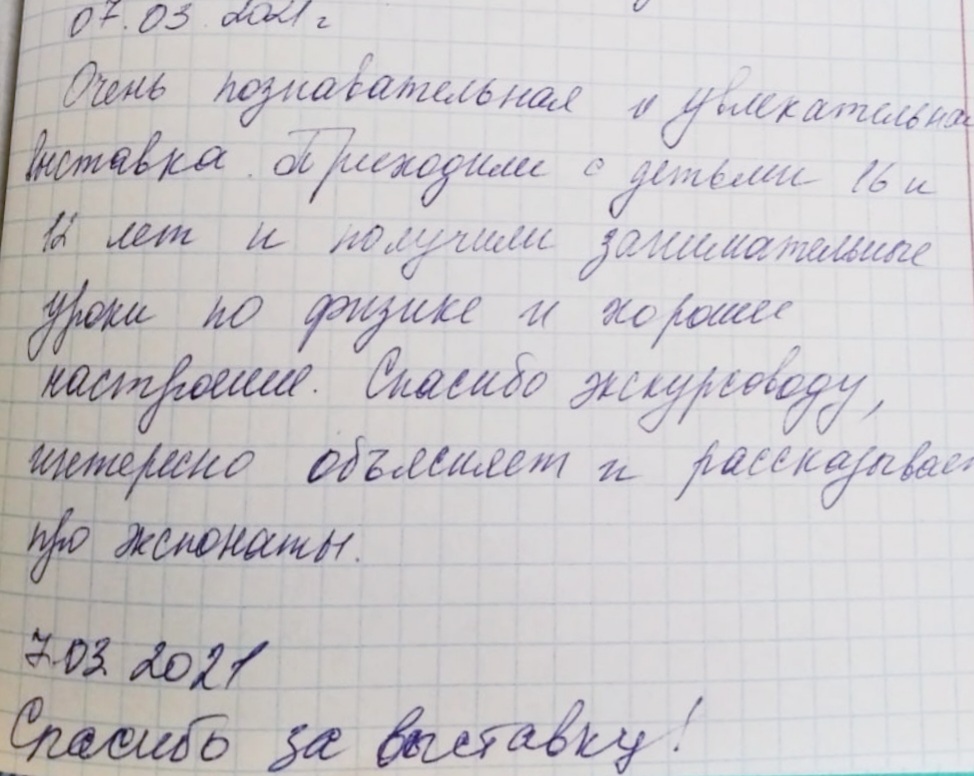 07.03.2021г
Очень познавательная и увлекательная
выставка. Приходили с детьми 16 и
12 лет и получили занимательные
уроки по физике и хорошее
настроение. Спасибо экскурсоводу,
интересно объясняет и рассказывает
про экспонаты.
7.03.2021
Спасибо за выставку!